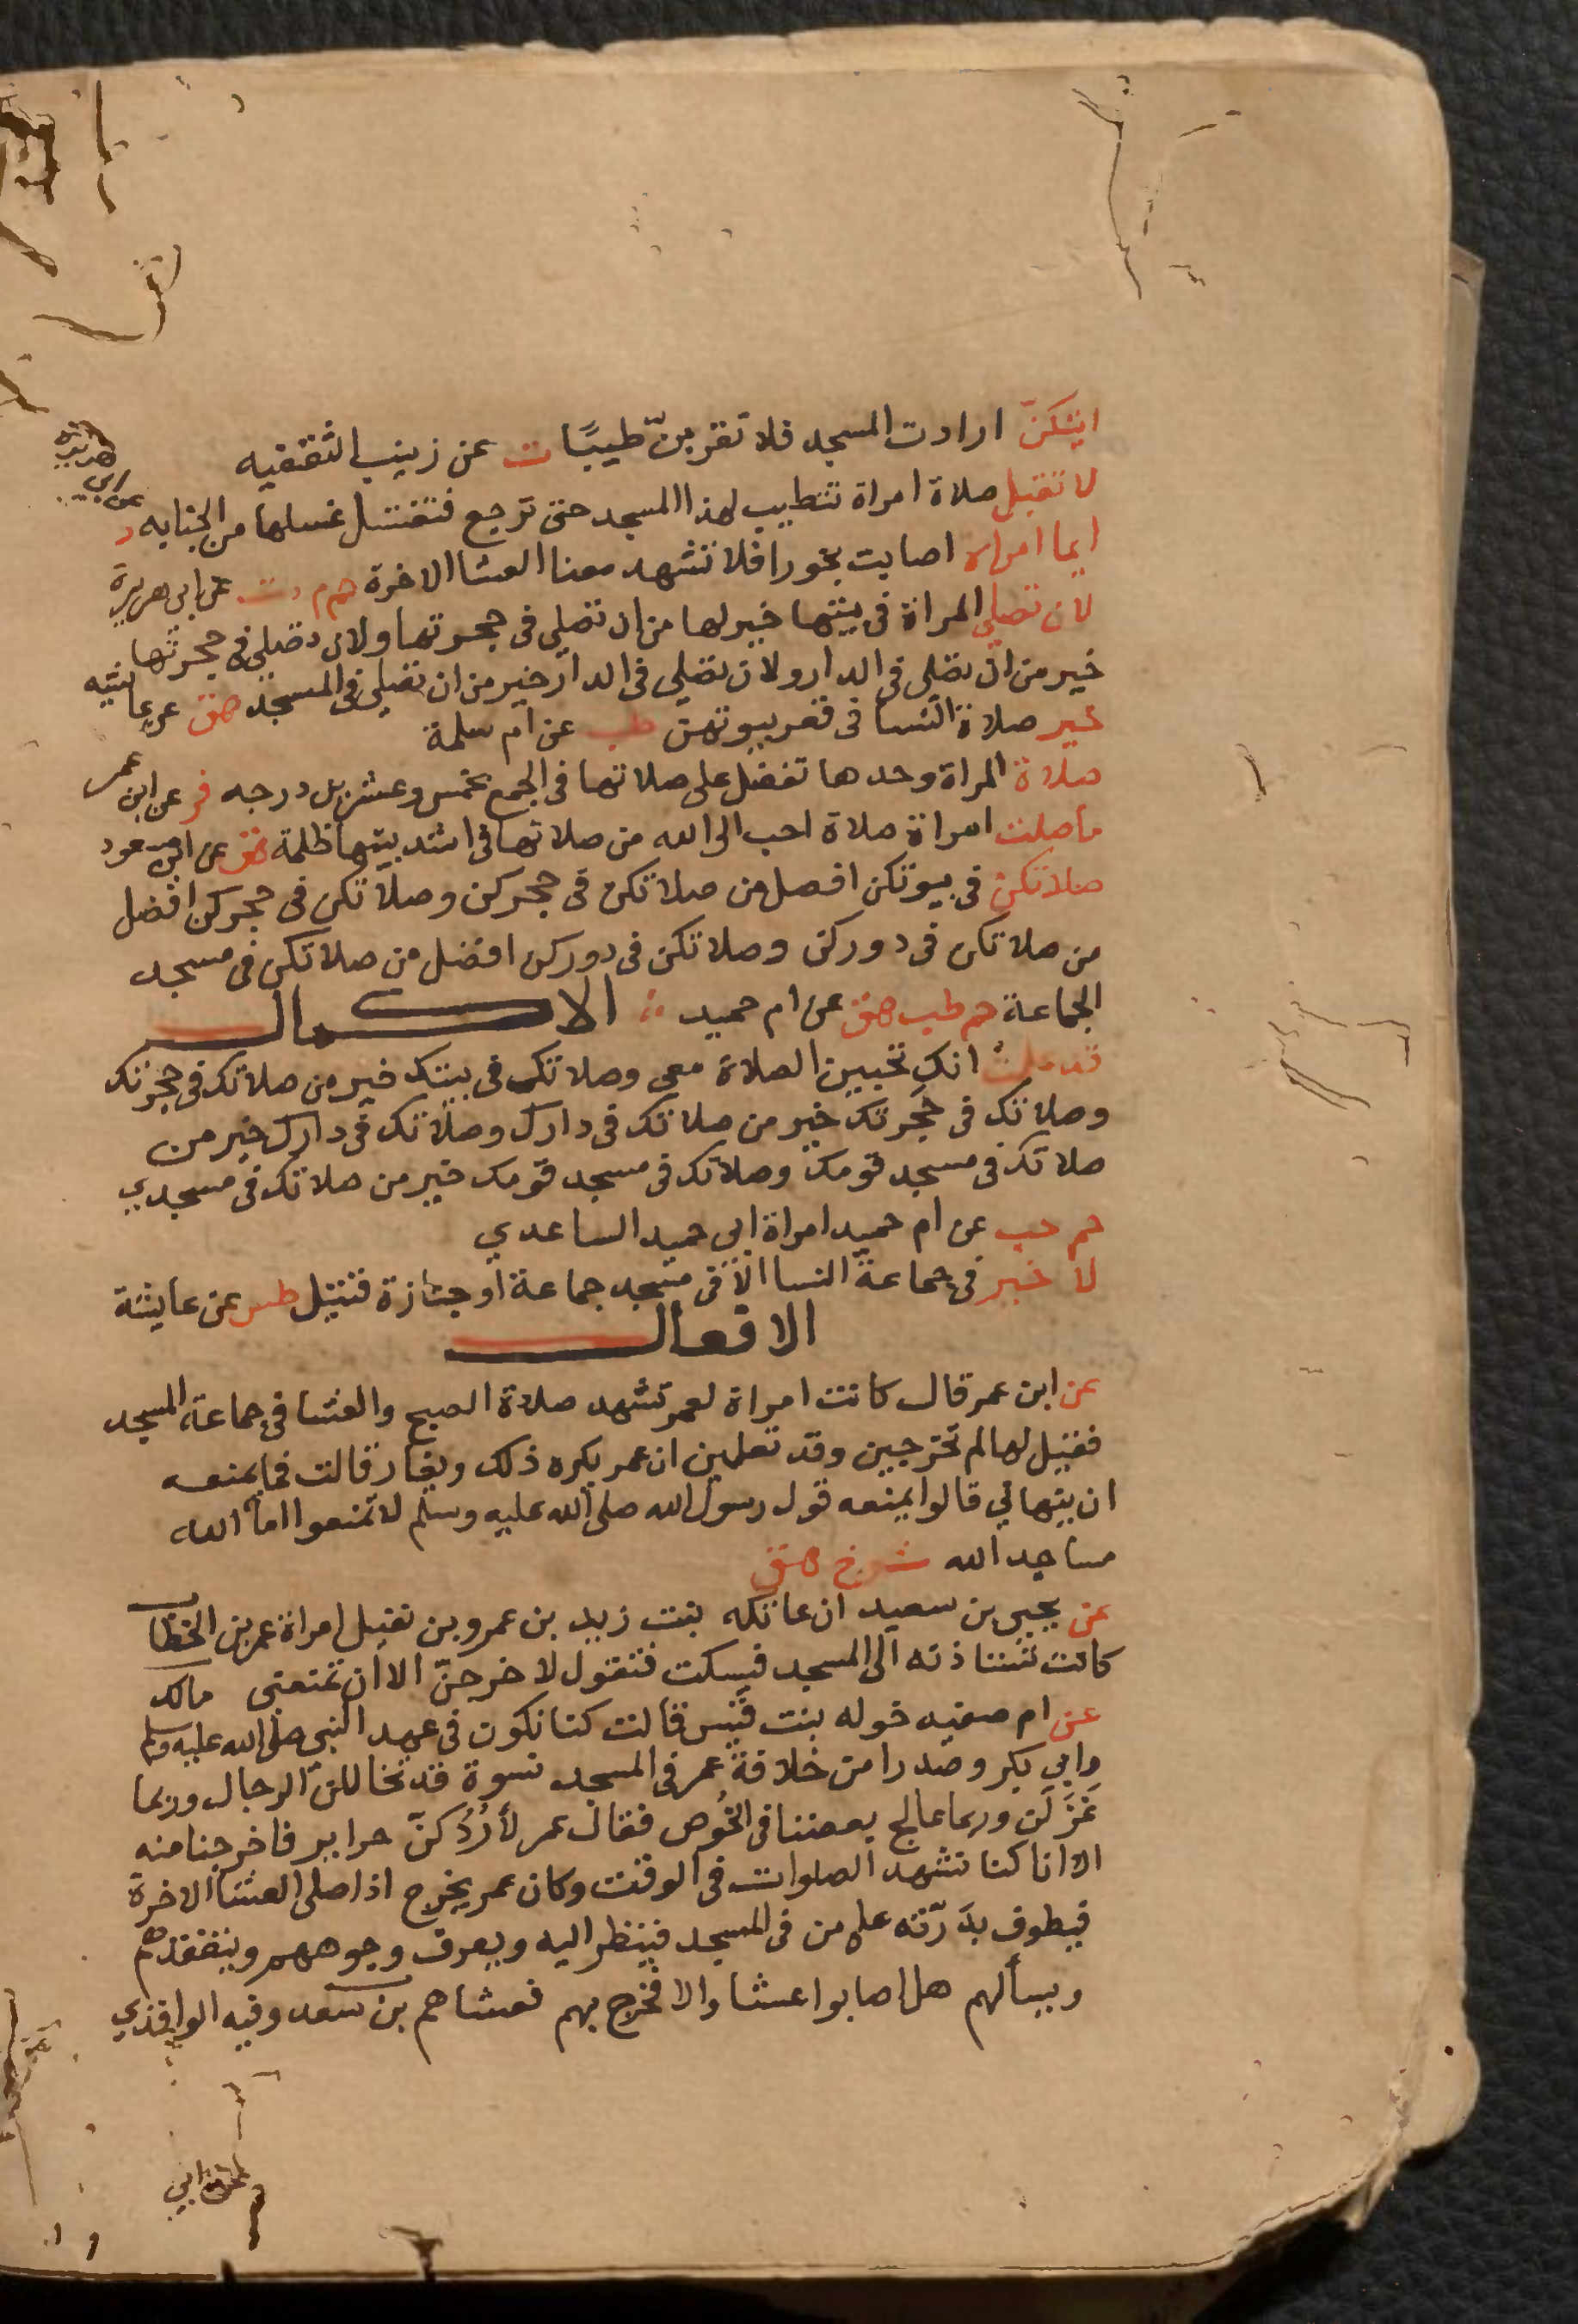 ايتكنّ ارادت المسجد فلا تقربنّ طيبًا ت عن زينب الثقفيه
لا تقبل صلاة امراة تتطيب لهذا المسجد حتى ترجع فتغتسل غسلها من الجنابه د عن ابي هريره
ايما امراه اصابت بخورا فلا تشهد معنا العشا الاخرة حم م د ت عن ابي هريرة
لان تصلي المراة فى بيتها خير لها من ان تصلي فى حجرتها ولان تصلي فى حجرتها
خير من ان تصلي فى الدار ولان تصلي فى الدار خير من ان تصلي فى المسجد هق عن عايشه
خير صلاة النسا فى قعر بيوتهن طب عن ام سلمة
صلاة المراة وحدها تفضل على صلاتها فى الجمع بخمس وعشرين درجه فر عن ابن عمر
ما صلت امراة صلاة احب الى الله من صلاتها فى اشد بيتها ظلمة هق عن ابن مسعود
صلاتكن فى بيوتكن افضل من صلاتكن فى حجركن وصلاتكن فى حجركن افضل
من صلاتكن فى دوركن وصلاتكن فى دوركن افضل من صلاتكن فى مسجد
الجماعة حم طب هق عن ام حميد الاكمال
قد علمت انك تحبين الصلاة معي وصلاتك فى بيتك خير من صلاتك فى حجرتك
وصلاتك فى حجرتك خير من صلاتك فى دارك وصلاتك فى دارك خير من
صلاتك فى مسجد قومك وصلاتك فى مسجد قومك خير من صلاتك فى مسجدي
حم حب عن ام حميد امراة ابى حميد الساعدي
لا خير فى جماعة النسا الا فى مسجد جماعة او جنازة قتيل طس عن عايشة
الافعال
عن ابن عمر قال كانت امراة لعمر تشهد صلاة الصبح والعشا فى جماعة المسجد
فقيل لها لم تخرجين وقد تعلمين ان عمر يكره ذلك ويغار قالت فما يمنعه
ان ينهاني قالوا يمنعه قول رسول الله صلى الله عليه وسلم لا تمنعوا اما الله
مساجد الله ش خ هق
عن يحيى بن سعيد ان عاتكه بنت زيد بن عمرو بن نفيل امراة عمر بن الخطاب
كانت تستاذنه الى المسجد فيسكت فتقول لاخرجنّ الا ان تمنعنى مالك
عن ام صفيه خوله بنت قيس قالت كنا نكون فى عهد النبى صلى الله عليه وسلم
وابي بكر وصدرا من خلافة عمر فى المسجد نسوة قد تخاللن الرجال وربما
غزلن وربما عالج بعضنا فى الخُوص فقال عمر لأردُّكنّ حراير فاخرجنا منه
الا انا كنا نشهد الصلوات فى الوقت وكان عمر يخرج اذا صلى العشا الاخرة
فيطوف بدرّته على من فى المسجد فينظر اليه ويعرف وجوههم ويتفقدهم
ويسألهم هل اصابوا عشا والا فخرج بهم فعشاهم بن سعد وفيه الواقدي